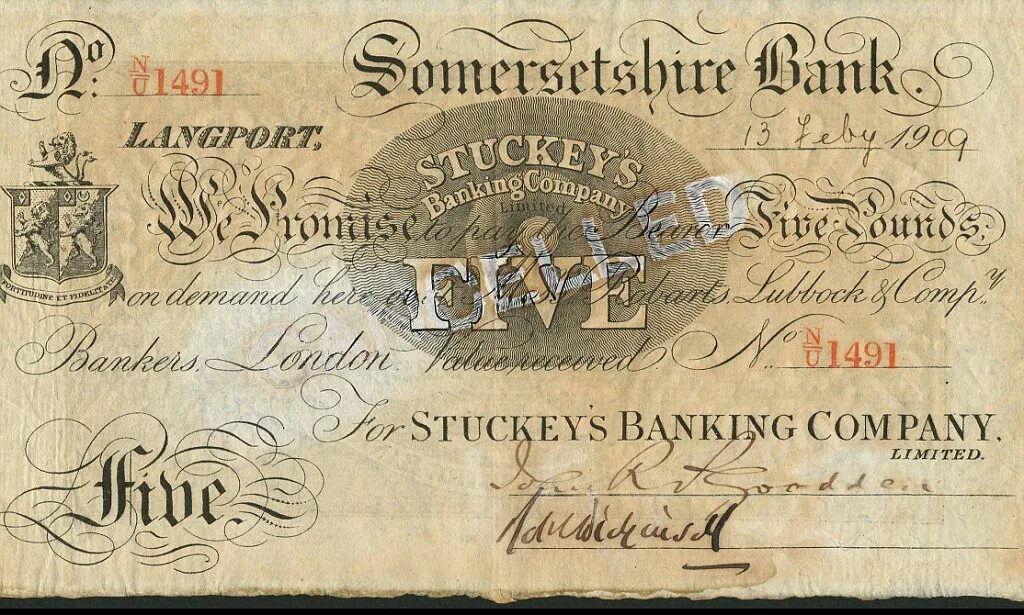 Nº. N/U 1491 Somersetshire Bank.
LANGPORT, 13 Feby 1909
STUCKEY'S
Banking Company
Limited
We Promise to pay the Bearer Five Pounds:
FIVE
CELLED
FORTITUDINE ET FIDELITATE
on demand here or Robarts, Lubbock & Compy.
Bankers, London. Value received. Nº. N/U 1491
For STUCKEY'S BANKING COMPANY,
LIMITED.
Five